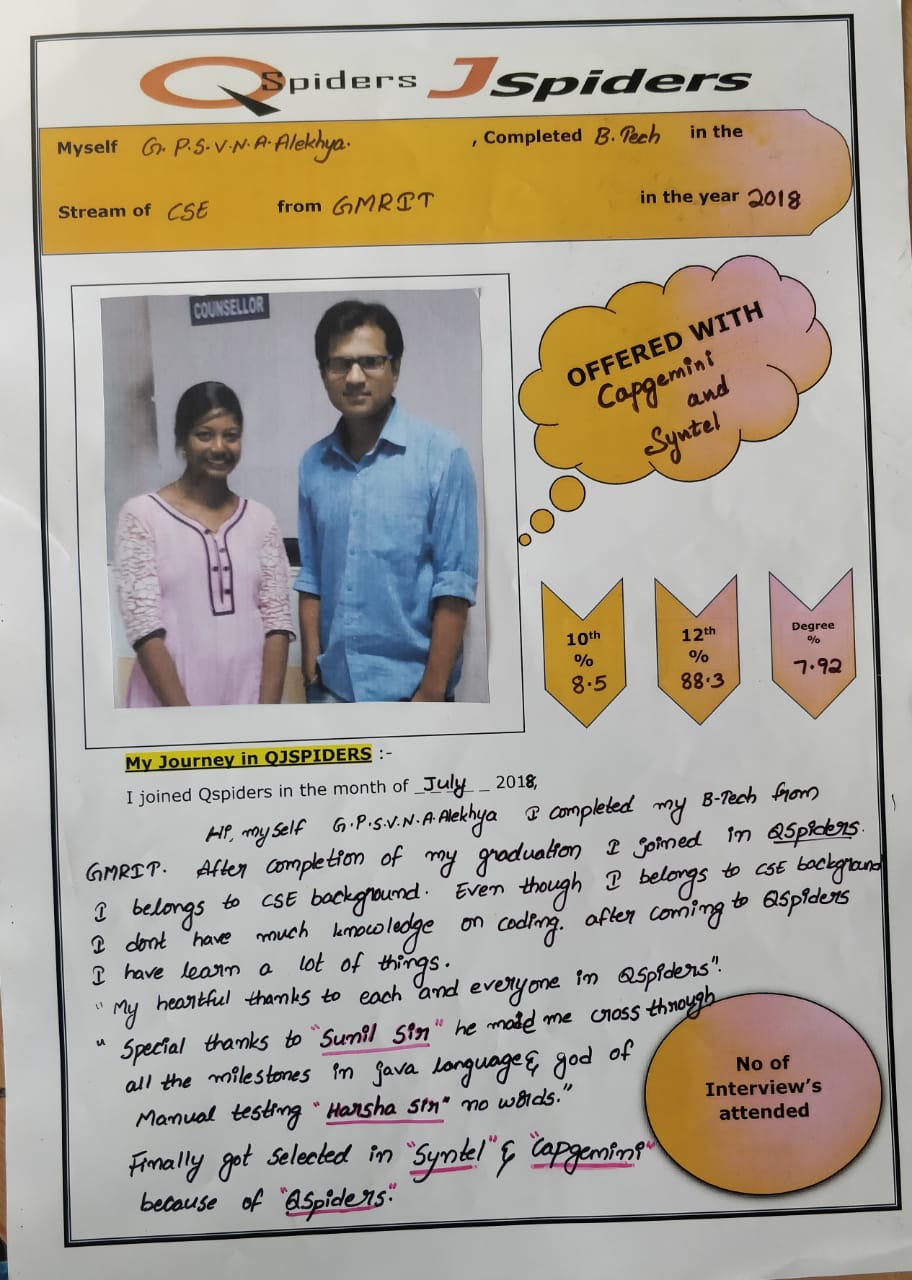 QSpiders JSpiders
Myself G. P.S.V.N.A.Alekhya. , Completed B.Tech in the
Stream of CSE from GMRIT in the year 2018
COUNSELLOR
OFFERED WITH
Capgemini
and
Syntel
10th
%
8.5
12th
%
88.3
Degree
%
7.92
My Journey in QJSPIDERS :-
I joined Qspiders in the month of _July_ _ 2018,
Hi, my self G.P.S.V.N.A.Alekhya I completed my B-Tech from
GMRIT. After completion of my graduation I joined in QSpiders.
I belongs to CSE background. Even though I belongs to CSE background
I dont have much knowledge on coding. after coming to QSpiders
I have learn a lot of things.
"My heartful thanks to each and everyone in QSpiders".
" Special thanks to "Sunil Sir" he made me cross through
all the milestones in java language & god of
Manual testing "Harsha sir" no words."
Finally got selected in "Syntel" & "Capgemini"
because of "QSpiders."
No of
Interview's
attended